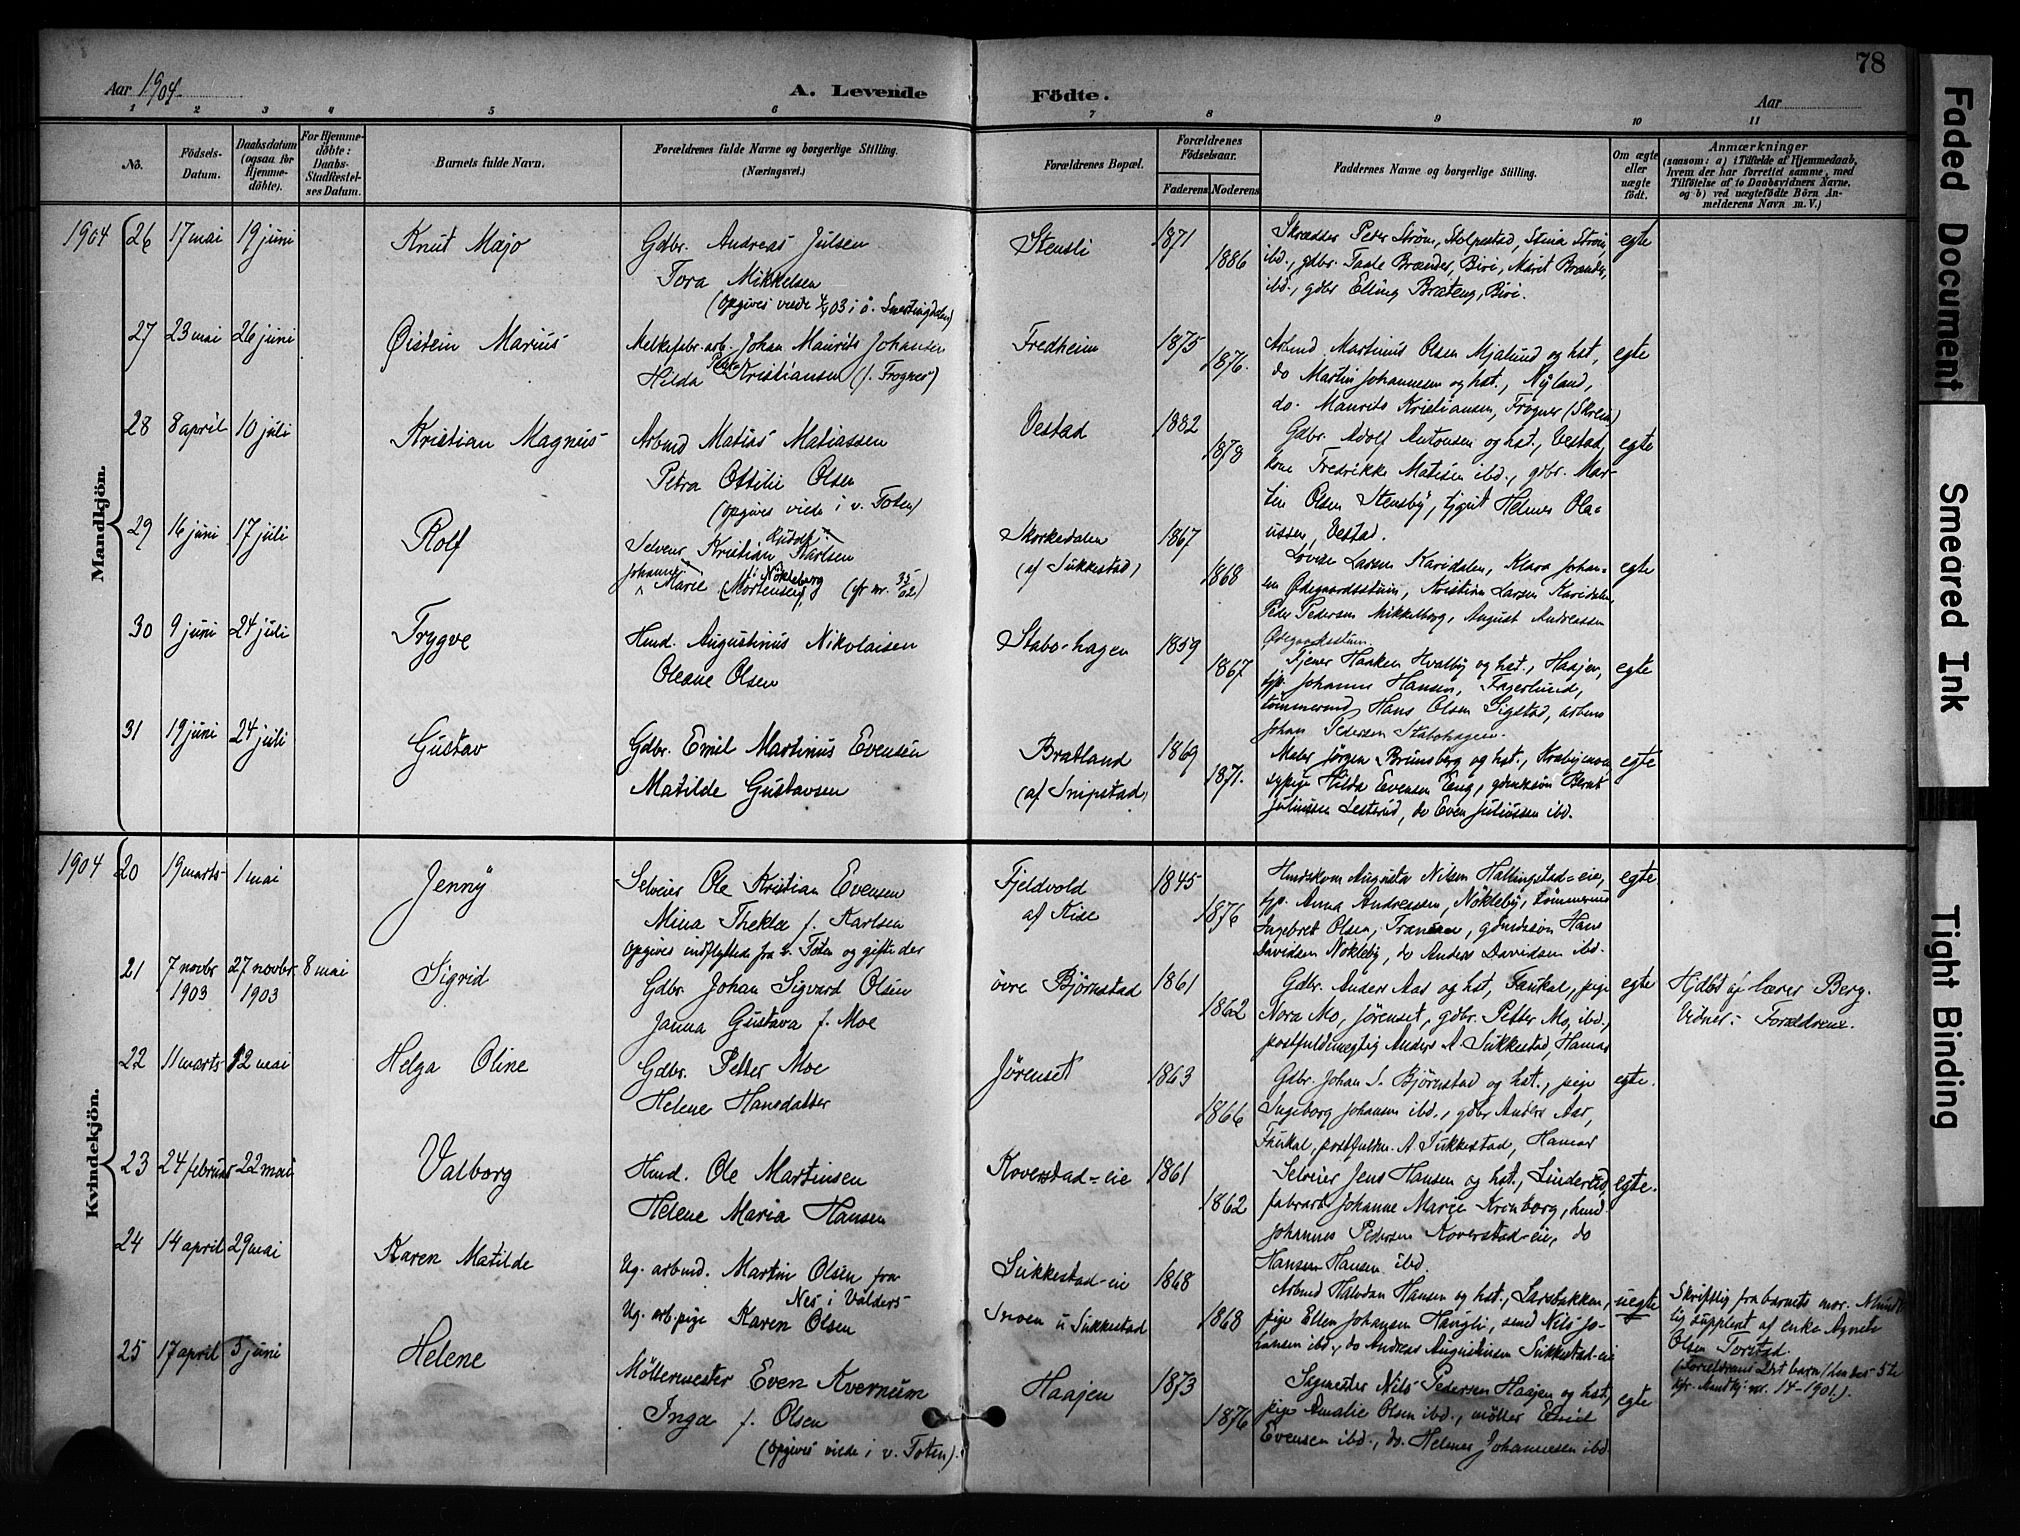 78
Aar 1904
A. Levende Födte.
Aar
1 2 3 4 5 6 7 8 9 10 11
No.
Födsels-Datum.
Daabsdatum (ogsaa for Hjemmedöbte).
For Hjemmedöbte: Daabs-Stadfæstelses Datum.
Barnets fulde Navn.
Forældrenes fulde Navne og borgerlige Stilling. (Næringsvei.)
Forældrenes Bopæl.
Forældrenes Födselsaar.
Faderens Moderens
Faddernes Navne og borgerlige Stilling.
Om ægte eller uægte födt.
Anmærkninger
(saasom: a) i Tilfælde af Hjemmedaab, hvem der har forrettet samme, med Tilföielse af to Daabsvidners Navne, og b) ved uægtefödte Börn Anmelderens Navn m. V.)
Mandkjön.
1904 26 17 mai 19 juni Knut Majo Gdbr. Andreas Julsen Stensli 1871 Skrædder Peder Strøm, Stolpestad, Stina Strøm egte
Tora Mikkelsen 1886 ibd., gdbr. Taale Brænder, Biri, Marit Brænder,
(opgives viede 4/4 03 i ö. Snertingdalen) ibd., gdbr Elling Bråteng, Biri.
27 23 mai 26 juni Øistein Marius Melkefabr. arb. Johan Maurits Johansen Fredheim 1875 Arbmd. Martinus Olsen Mjølund og hst, egte
Hilda Kristiansen (f. Frogner) 1876. do Martin Johannesen og hst., Nyland,
do. Maurits Kristiansen, Frogner (Skolen)
28 8 april 10 juli Kristian Magnus Arbmd Matias Matiassen Vestad 1882 Gdbr. Adolf Antonsen og hst., Vestad, egte
Petra Ottilie Olsen 1878 kone Fredrikke Matisen ibd., gdbr. Mar-
(opgives viede i v. Toten) tin Olsen Stensby, tjgut Helmer Ola-
ussen, Vestad.
29 16 juni 17 juli Rolf Selveier Kristian Rudolf Karlsen Skorkedalen 1867 Lovise Larsen Karidalen, Klara Johan- egte
Johanne Marie (Mortensen) f. Nökleberg (jfr nr. 35/02) (af Sukkestad) 1868 sen Ødegaardsstuen, Kristian Larsen Karidalen
Peder Pedersen Mikkelborg, August Andreassen
Ødegaardsstuen.
30 9 juni 24 juli Trygve Hmd. Augustinus Nikolaisen Stabo-hagen 1859 Tjener Haaken Hvalby og hst., Haajen, egte
Oleane Olsen 1867 tjp. Johanne Hansen, Fagerlund,
tömmermd, Hans Olsen Sigstad, arbmd
Johan Pedersen Stabohagen.
31 19 juni 24 juli Gustav Gdbr. Emil Martinus Evensen Bratland 1869 Maler Jörgen Brunsberg og hst., Kraby egte
Matilde Gustavsen (af Snipstad) 1871. sypige Hilda Evensen Eng, gdmdssön Bernt
Juliussen Lesterud, do Even Juliussen ibd.
Kvindekjön.
1904 20 19 marts 1 mai Jenny Selveier Ole Kristian Evensen Fjeldvold 1845 Husdskom Augusta Nilsen Hallingstad-eie, egte
Mina Thekla f. Karlsen af Kise 1876 tjp. Anna Andreassen, Nökleby, tömmermd
opgives indflyttede fra v. Toten og gifte der Ingebret Olsen, gdmdssön Hans
Davidsen Nökleby, do Anders Davidsen ibd.
21 7 novbr 1903 27 novbr 1903 8 mai Sigrid Gdbr. Johan Sigvard Olsen övre Bjørnstad 1861 Gdbr. Anders Aas og hst, Faukal, pige egte Hjdbt af lærer Berg.
Janna Gustava f. Moe 1862 Nora Mo, Jørenset, gdbr. Petter Mo, ibd., Vidner: Forældrene.
postfuldmægtig Anders A. Sukkestad, Hamar
22 11 marts 12 mai Helga Oline Gdbr. Petter Moe Jørenset 1863 Gdbr. Johan S. Bjørnstad og hst., pige egte.
Helene Hansdatter 1866 Ingeborg Johansen ibd., gdbr Anders Aas,
Faukal, postfuldm. A. Sukkestad, Hamar
23 24 februar 22 mai Valborg Hmd. Ole Martinsen Koverstad-eie 1861 Selveier Jens Hansen og hst., Linderud, egte.
Helene Maria Hansen 1862 fabrarb Johanne Marie Kronborg, hmd
Johannes Pedersen Koverstad-eie, do
Hansen Hansen ibd.
24 14 april 29 mai Karen Matilde Ug. arbmd. Martin Olsen fra Sukkestad-eie 1868 Arbmd Halvdan Hansen og hst., Larsbakken, uegte Skriftlig fra barnets mor. Mundt-
Nes i Valders- pige Ellen Johansen Haugli, smed Nils Jo- lig supplent af enke Agnete
Ug. arb. pige Karen Olsen u Sukkestad 1868 hansen ibd., do Andreas Augustinsen Sukkestad-eie Olsen Torstad.
(Forældrenes 2det barn/hendes 5te
jfr. Mandkj. nr. 14-1901.).
25 17 april 5 juni Helene Möllermester Even Kvernum Haajen 1873 Sagmester Nils Pedersen Haajen og hst, egte
Inga f. Olsen 1876 pige Amalie Olsen ibd., möller Emil
(opgives viede i v. Toten). Evensen ibd., do. Helmer Johannesen ibd.
Faded Document
Smeared Ink
Tight Binding